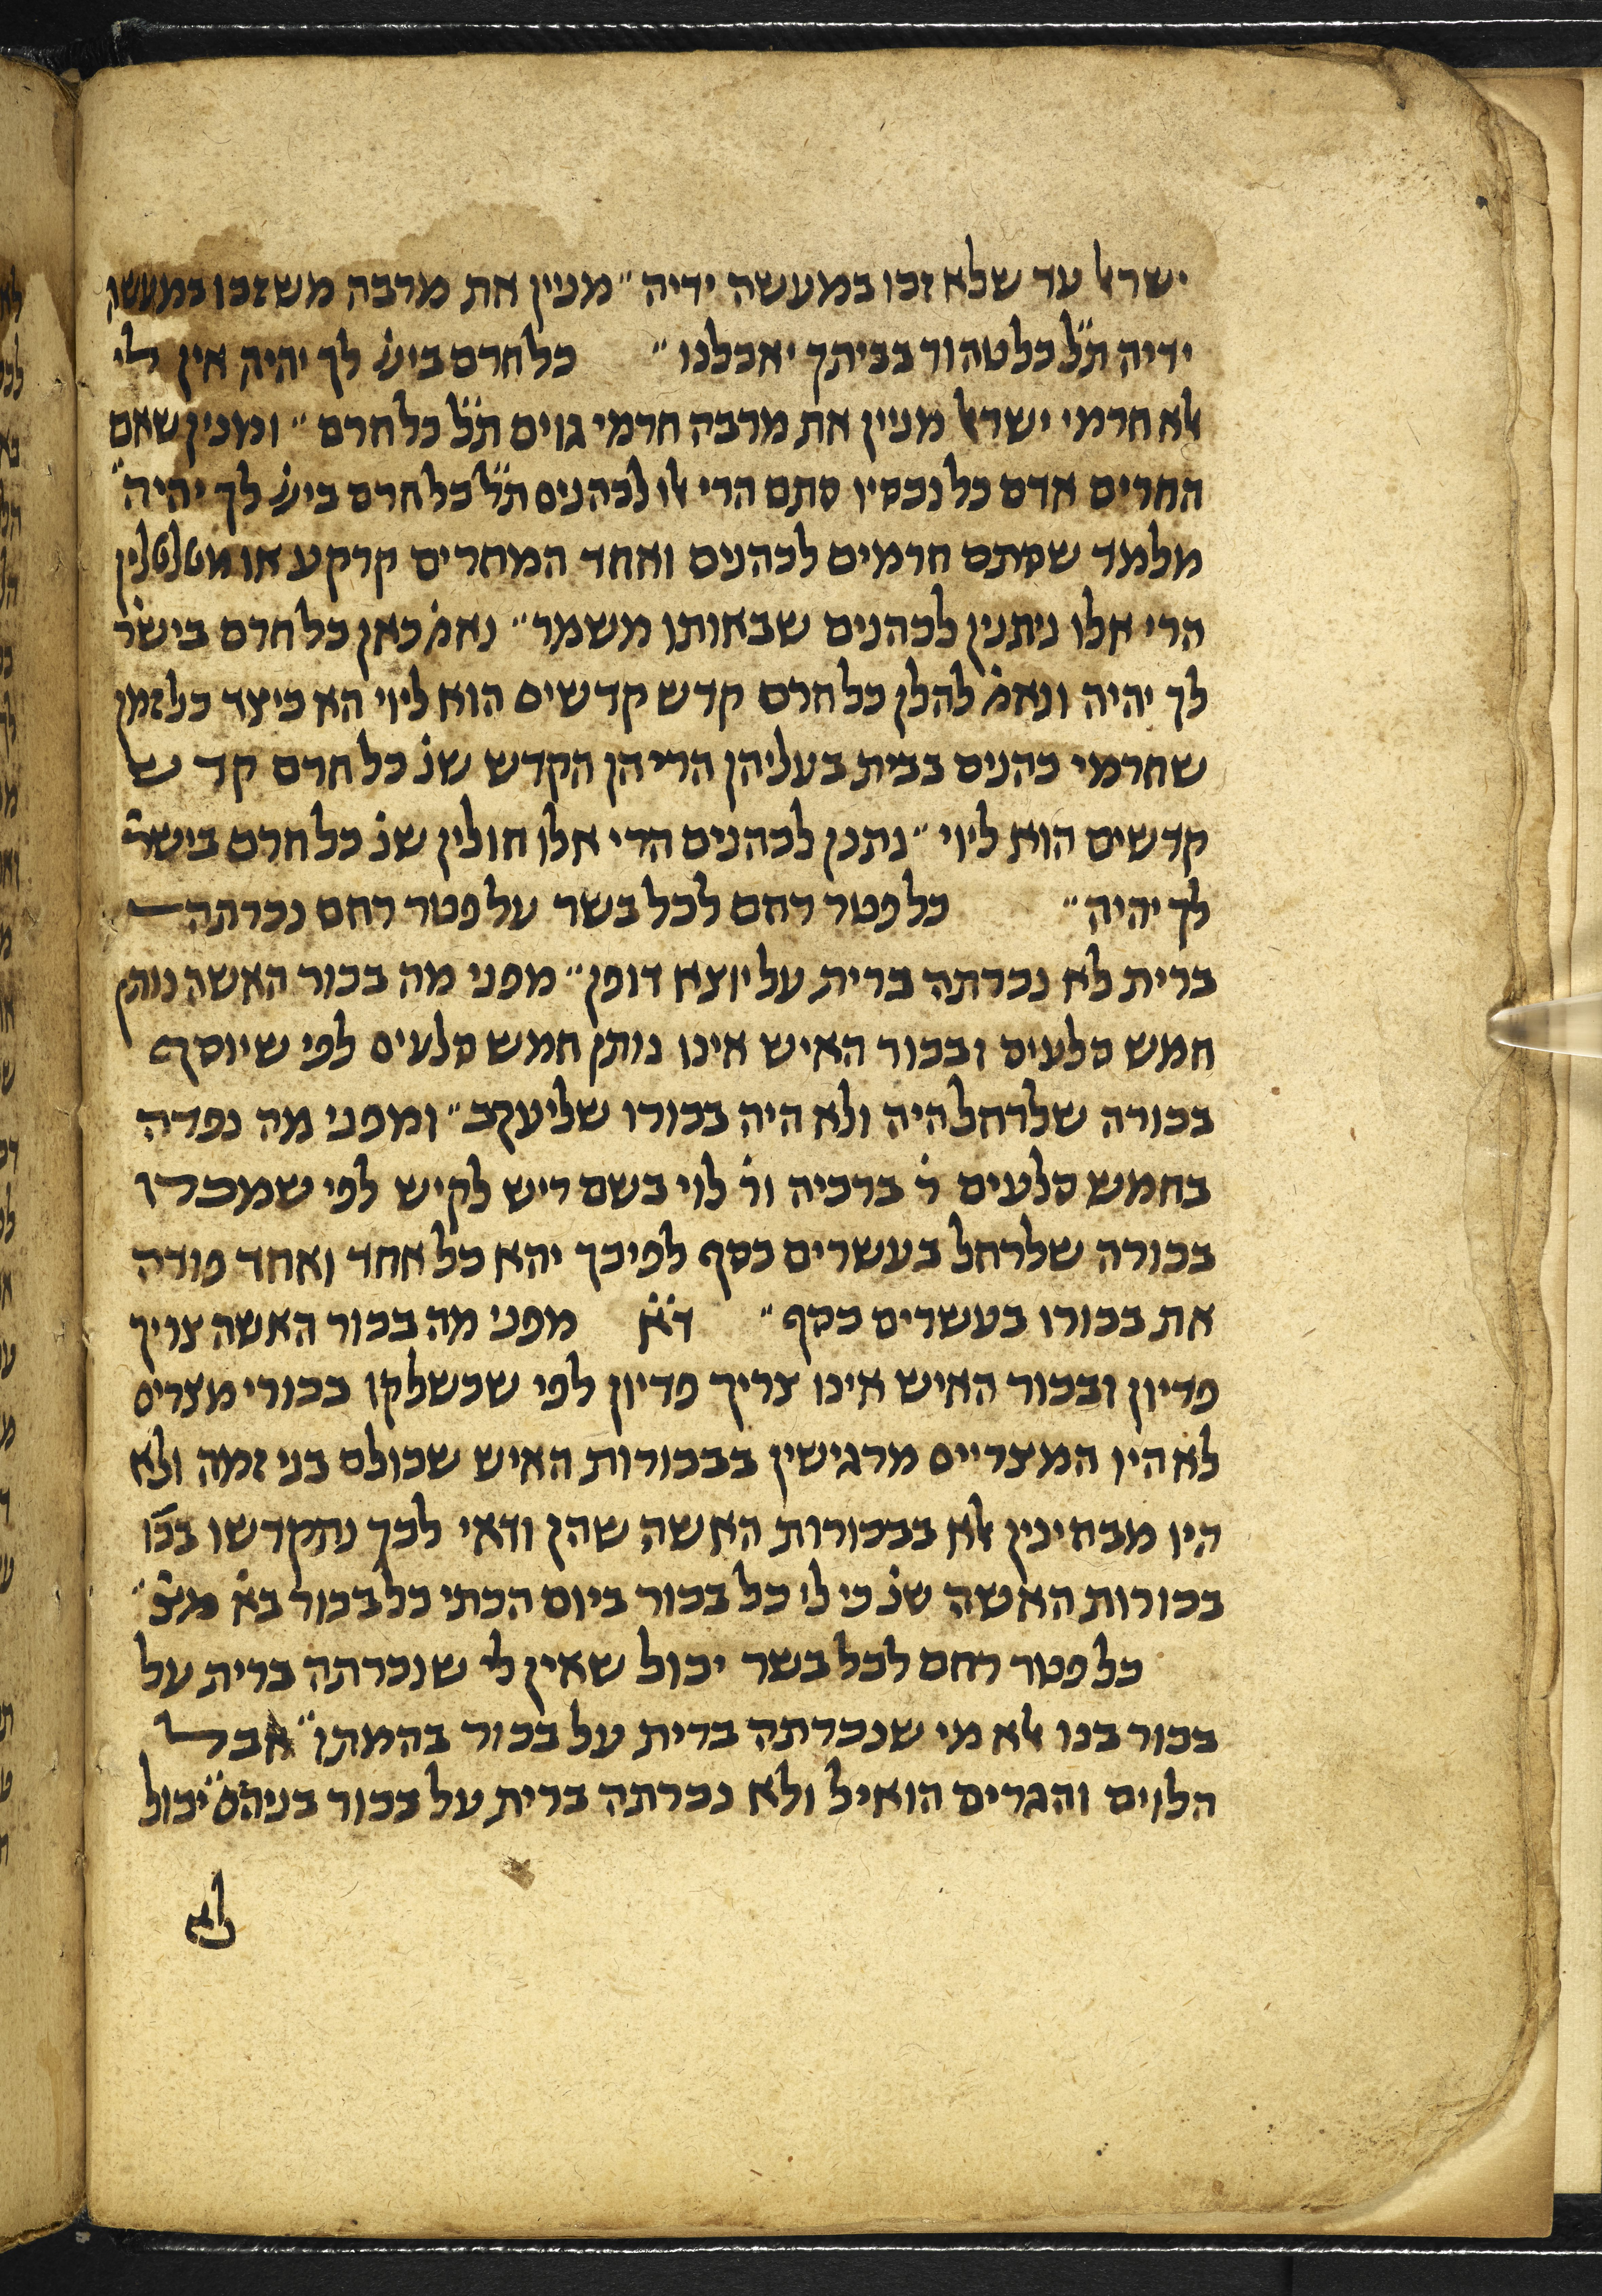 ישראל עד שלא זכו במעשה ידיה״ מניין את מרבה משזכו במעשה
ידיה ת״ל כל טהור בביתך יאכלנו״ כל חרם ביש׳ לך יהיה אין לי
אלא חרמי ישראל מניין את מרבה חרמי גוים ת״ל כל חרם״ ומנין שאם
החרים אדם כל נכסיו סתם הרי אלו לכהנים ת״ל כל חרם ביש׳ לך יהיה״
מלמד שסתם חרמים לכהנים ואחד המחרים קרקע או מטלטלין
הרי אלו ניתנין לכהנים שבאותו משמר״ נאמ׳ כאן כל חרם בישר׳
לך יהיה ונאמ׳ להלן כל חרם קדש קדשים הוא לייי הא כיצד כל זמן
שחרמי כהנים בבית בעליהן הרי הן הקדש שנ׳ כל חרם קדש
קדשים הוא לייי״ נתנן לכהנים הרי אלו חולין שנ׳ כל חרם בישר׳
לך יהיה״ כל פטר רחם לכל בשר על פטר רחם נכרתה
ברית לא נכרתה ברית על יוצא דופן״ מפני מה בכור האשה נותן
חמש סלעים ובכור האיש אינו נותן חמש סלעים לפי שיוסף
בכורה שלרחל היה ולא היה בכורו שליעקב״ ומפני מה נפדה
בחמש סלעים ר׳ ברכיה ור׳ לוי בשם ריש לקיש לפי שמכרו
בכורה שלרחל בעשרים כסף לפיכך יהא כל אחד ואחד פודה
את בכורו בעשרים כסף״ ד״א מפני מה בכור האשה צריך
פדיון ובכור האיש אינו צריך פדיון לפי שכשלקו בכורי מצרים
לא היו המצריים מרגישין בבכורות האיש שכולם בני זמה ולא
היו מבחינין אלא בבכורות האשה שהן ודאי לכך נתקדשו בכו׳
בכורות האשה שנ׳ כי לי כל בכור ביום הכתי כל בכור בא׳ מצ׳״
כל פטר רחם לכל בשר יכול שאין לי שנכרתה ברית על
בכור בנו אלא מי שנכרתה ברית על בכור בהמתו״ אבל
הלוים והגרים הואיל ולא נכרתה ברית על בכור בניהם״ יכול
לא